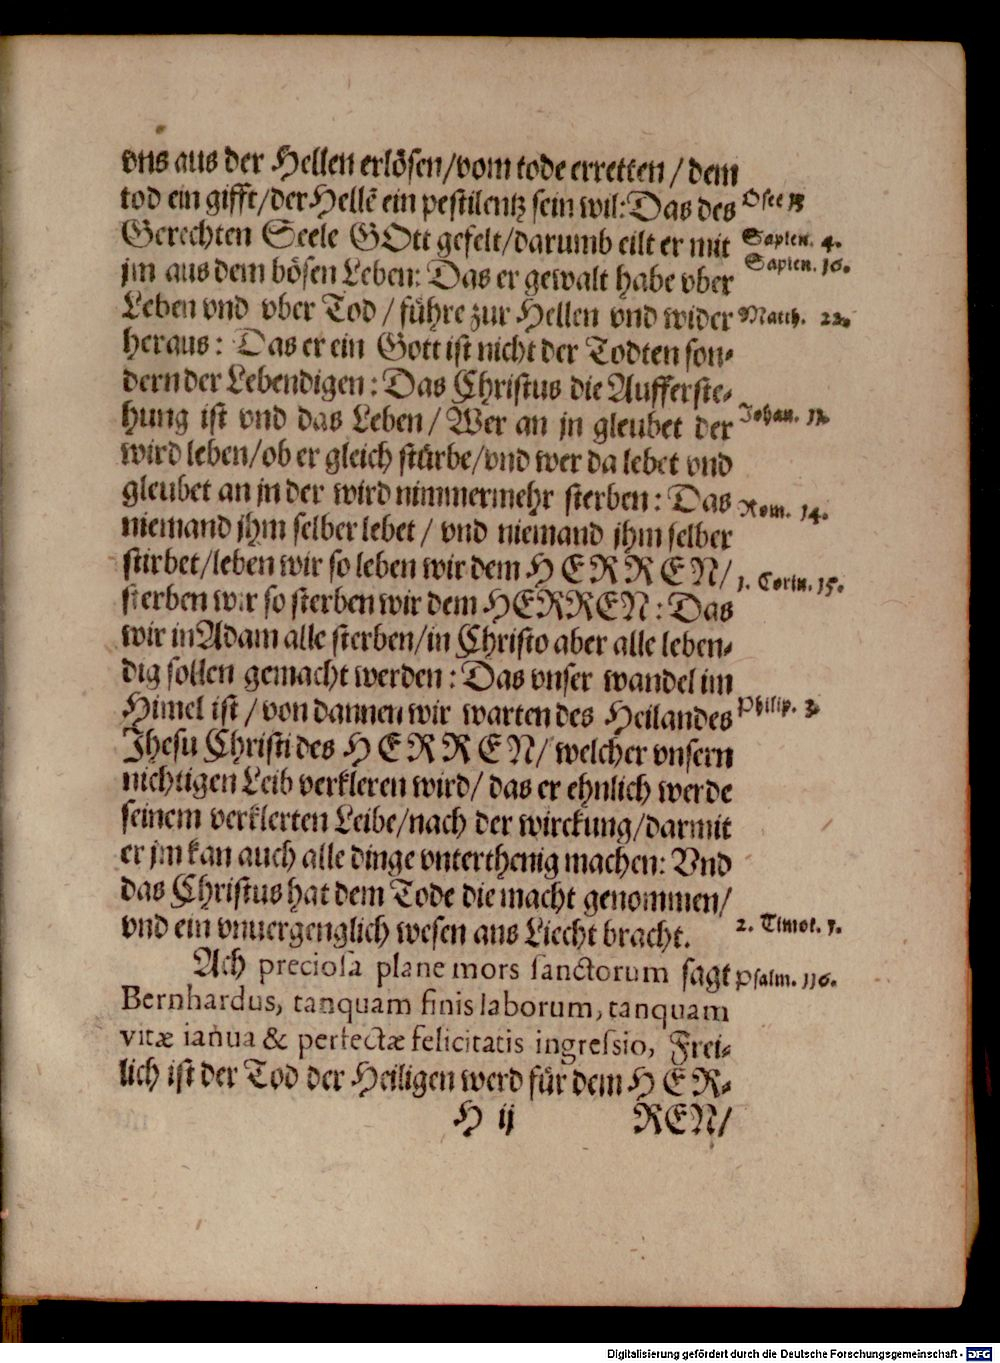 vns aus der Hellen erlösen/vom tode erretten / dem
tod ein gifft/der Hellē ein pestilentz sein wil: Das des
Osee 13
Gerechten Seele GOtt gefelt/darumb eilt er mit
Sapien. 4.
jm aus dem bösen Leben: Das er gewalt habe vber
Sapien. 16.
Leben vnd vber Tod / führe zur Hellen vnd wider
Matth. 22.
heraus: Das er ein Gott ist nicht der Todten son-
dern der Lebendigen: Das Christus die Aufferste-
hung ist vnd das Leben/ Wer an jn gleubet der
Johan. 11.
wird leben/ob er gleich stürbe/vnd wer da lebet vnd
gleubet an jn der wird nimmermehr sterben: Das
Rom. 14.
niemand jhm selber lebet / vnd niemand jhm selber
stirbet/leben wir so leben wir dem HERREN/
1. Corin. 15.
sterben wir so sterben wir dem HERREN: Das
wir in Adam alle sterben/in Christo aber alle leben-
dig sollen gemacht werden: Das vnser wandel im
Himel ist / von dannen wir warten des Heilandes
Philip. 3.
Jhesu Christi des HERREN/ welcher vnsern
nichtigen Leib verkleren wird/ das er ehnlich werde
seinem verklerten Leibe/nach der wirckung/darmit
er jm kan auch alle dinge vnterthenig machen: Vnd
das Christus hat dem Tode die macht genommen/
vnd ein vnuergenglich wesen aus Liecht bracht.
2. Timot. 1.
Ach preciosa plane mors sanctorum sagt
Psalm. 116.
Bernhardus, tanquam finis laborum, tanquam
vitæ ianua & perfectæ felicitatis ingressio, Frei-
lich ist der Tod der Heiligen werd für dem HER-
H ij REN/
Digitalisierung gefördert durch die Deutsche Forschungsgemeinschaft - DFG